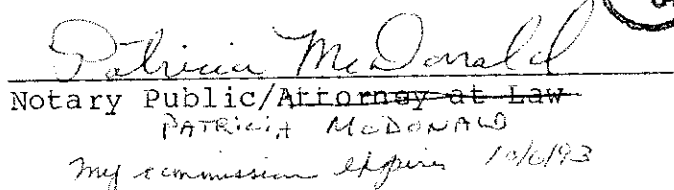 Patricia McDonald
Notary Public/Attorney at Law
PATRICIA McDONALD
My commission expires 10/6/93